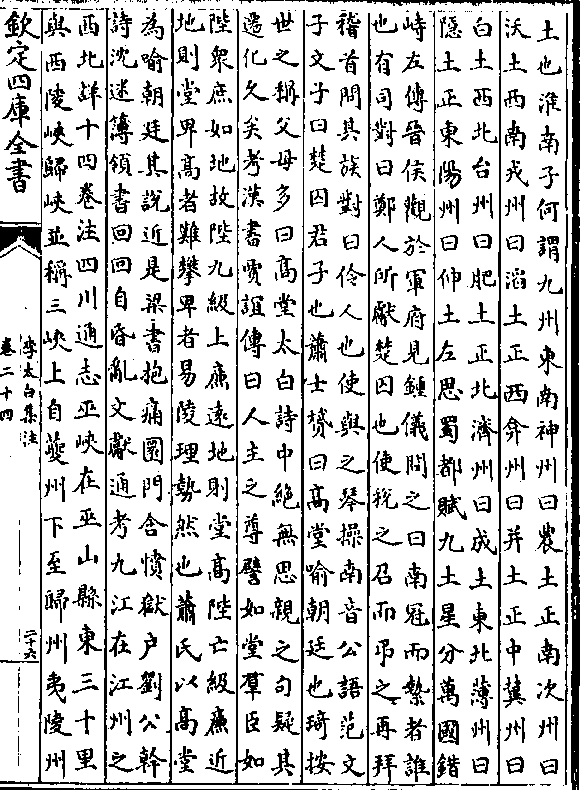 土也淮南子何謂九州東南神州曰農土正南次州曰
沃土西南戎州曰滔土正西弇州曰并土正中冀州曰
白土西北台州曰肥土正北濟州曰成土東北薄州曰
隱土正東陽州曰伸土左思蜀都賦九土星分萬國錯
峙左傳晉侯觀於軍府見鍾儀問之曰南冠而縶者誰
也有司對曰鄭人所獻楚囚也使稅之召而弔之再拜
稽首問其族對曰伶人也使與之琴操南音公語范文
子文子曰楚囚君子也蕭士贇曰高堂喻朝廷也琦按
世之稱父母多曰高堂太白詩中絶無思親之句疑其
遣化久矣考漢書賈誼傳曰人主之尊譬如堂羣臣如
陛衆庶如地故陛九級上廉遠地則堂高陛亡級廉近
地則堂卑高者難攀卑者易陵理勢然也蕭氏以高堂
為喻朝廷其說近是梁書抱痛圜門含憤獄户劉公幹
詩沈迷簿領書回回自昏亂文獻通考九江在江州之
西北詳十四巻注四川通志巫峽在巫山縣東三十里
與西陵峽歸峽並稱三峽上自夔州下至歸州夷陵州
欽定四庫全書
李太白集注
卷二十四
二十六